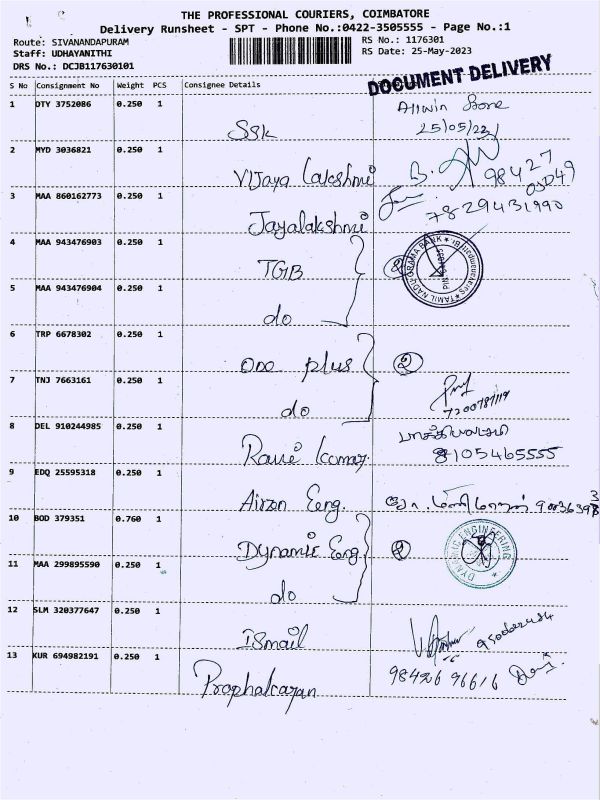 THE PROFESSIONAL COURIERS, COIMBATORE
Delivery Runsheet - SPT - Phone No.:0422-3505555 - Page No.:1
Route: SIVANANDAPURAM RS No.: 1176301
Staff: UDHAYANITHI RS Date: 25-May-2023
DRS No.: DCJB117630101
DOCUMENT DELIVERY
S No Consignment No Weight PCS Consignee Details
1 DTY 3752086 0.250 1
SSK 25/05/23
2 MYD 3036821 0.250 1
Vijaya Lakshmi B. 98427
3 MAA 860162773 0.250 1
Jayalakshmi 7829431990
4 MAA 943476903 0.250 1
TGB 2 TAMIL NADU GRAMA BANK
5 MAA 943476904 0.250 1
do
6 TRP 6678302 0.250 1
one plus 2
7 TNJ 7663161 0.250 1
do
8 DEL 910244985 0.250 1
Ravi Kumar 8105465555
9 EDQ 25595318 0.250 1
Eng.
10 BOD 379351 0.760 1
Dynamic Eng. 2 DYNAMIC ENGINEERING
11 MAA 299895590 0.250 1
do
12 SLM 320377647 0.250 1
Ismail
13 KUR 694982191 0.250 1
98426 96616